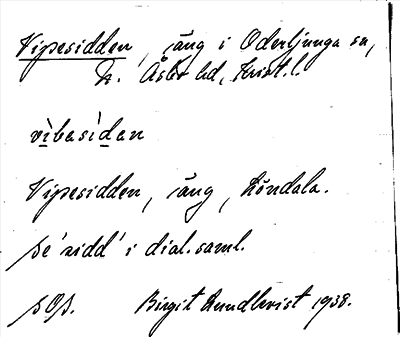 Vipesidden, äng i Oderljunga sn,
N. Åsbo hd, Krist. l.
vìbasìdan
Vipesidden, äng, Röndala.
Se 'sidd' i dial. saml.
SOS. Birgit Lundkvist 1938.